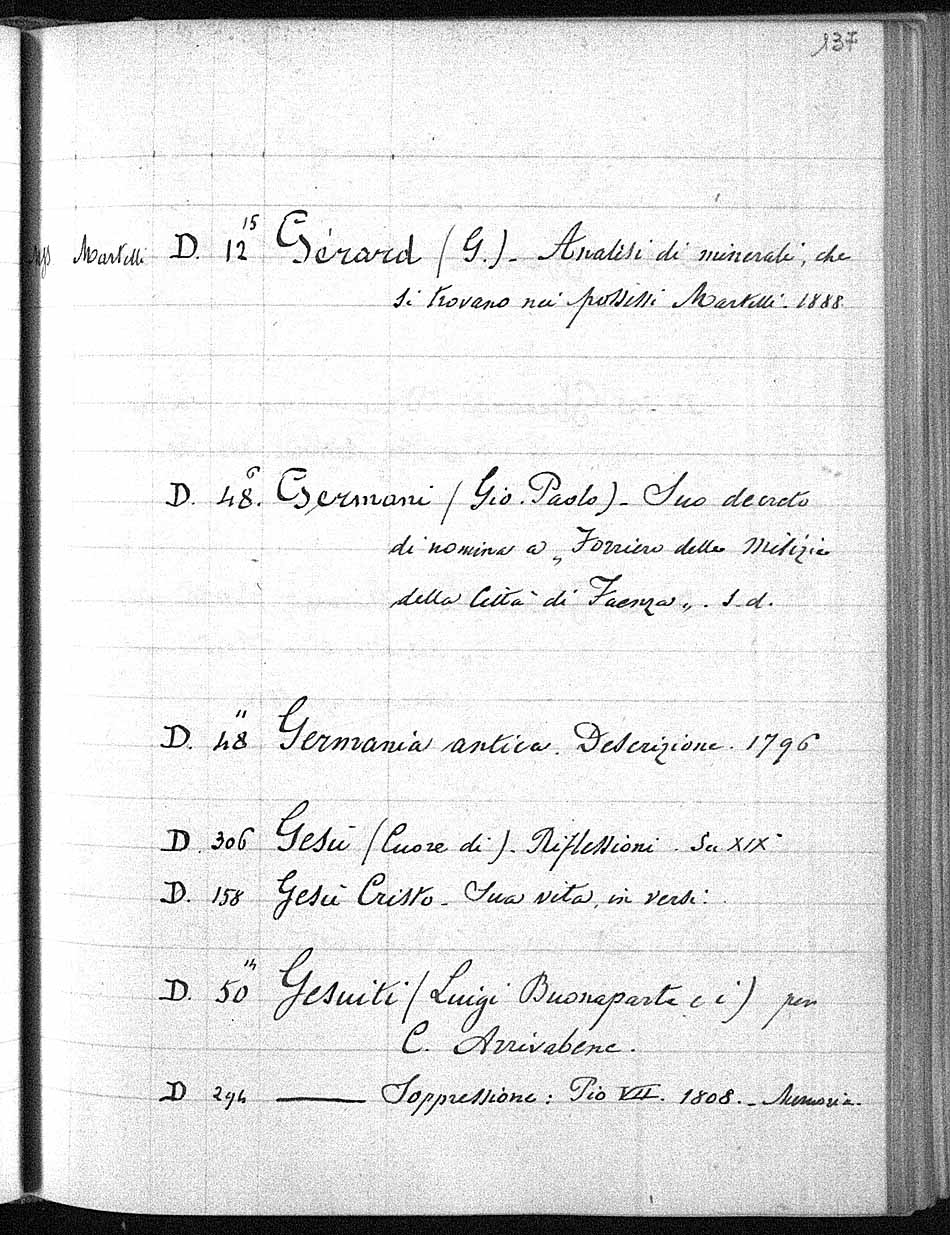 137
Martelli D. 12 15 Gérard (G.) - Analisi di minerali, che
si trovano nei possessi Martelli - 1888
D. 48. 6 Germani (Gio. Paolo) - Suo decreto
di nomina a „Forriere delle Milizie
della Città di Faenza„. s.d.
D. 48 11 Germania antica. Descrizione. 1796
D. 306 Gesù (Cuore di) - Riflessioni. Sec XIX°
D. 158 Gesù Cristo - Sua vita, in versi.
D. 50 14 Gesuiti (Luigi Buonaparte e i) per
C. Arrivabene.
D 294 ——— Soppressione: Pio VII. 1808. - Memoria.